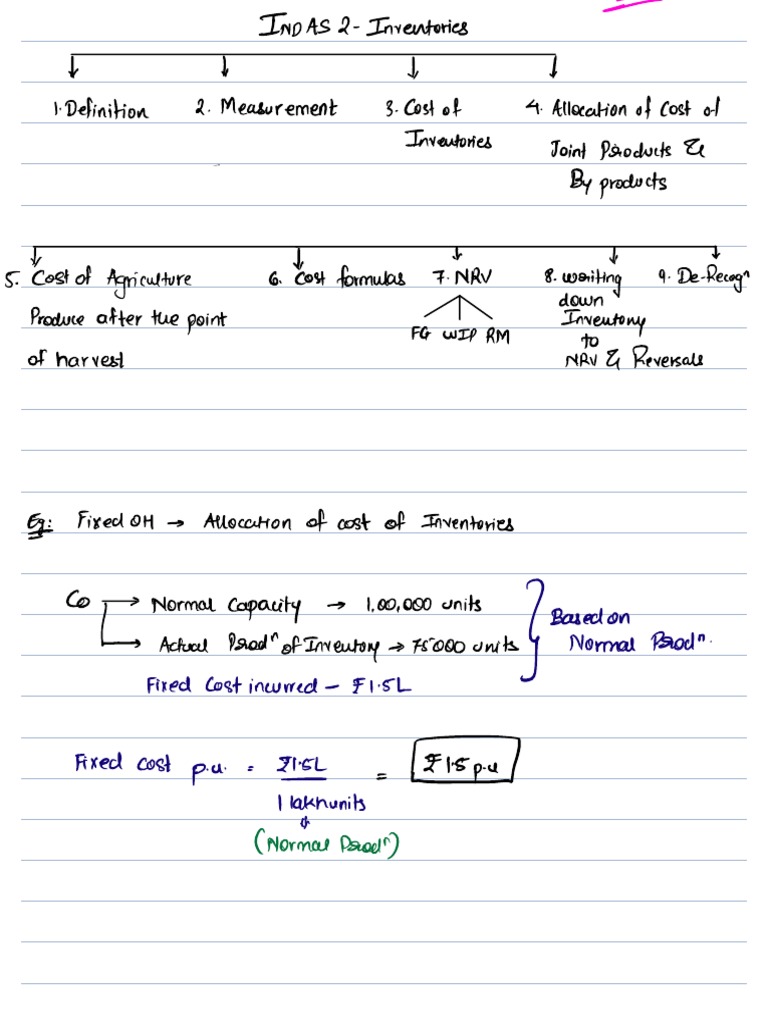 IND AS 2 - Inventories
1. Definition 2. Measurement 3. Cost of Inventories 4. Allocation of Cost of Joint Products & By products
5. Cost of Agriculture Produce after the point of harvest 6. Cost formulas 7. NRV 8. writing down Inventory to NRV & Reversals 9. De-Recogⁿ
FG WIP RM
Eg: Fixed OH → Allocation of cost of Inventories
Co → Normal Capacity → 1,00,000 units
→ Actual Prodⁿ of Inventory → 75000 units
Based on Normal Prodⁿ.
Fixed Cost incurred - ₹1.5L
Fixed cost p.u. = ₹1.5L / 1 lakh units = ₹1.5 p.u
(Normal Prodⁿ)